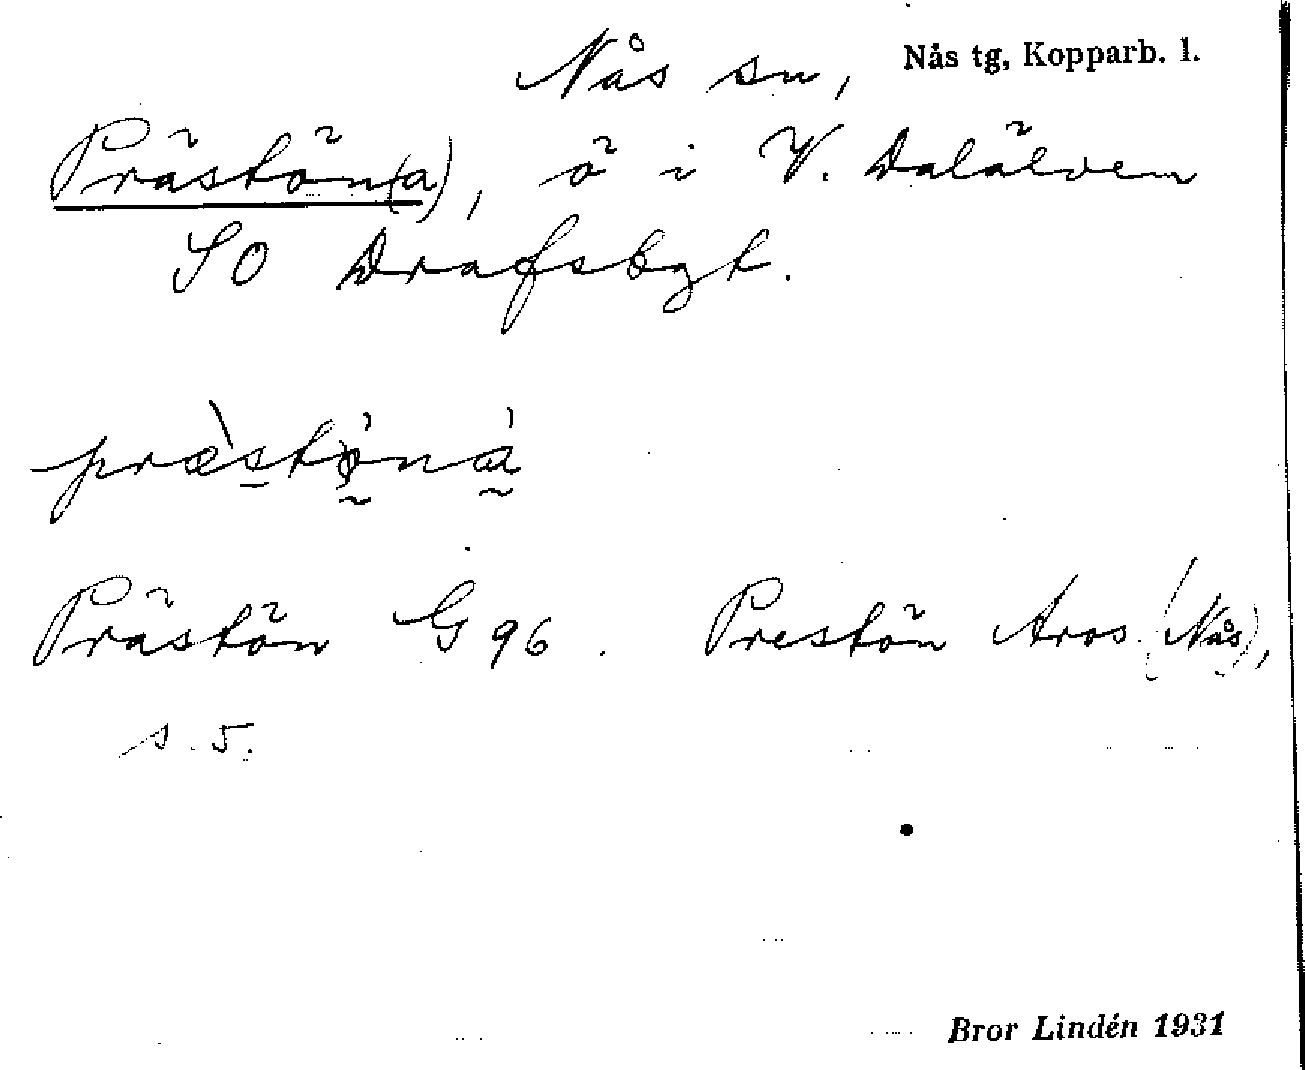 Nås sn, Nås tg, Kopparb. l.
Prästön(a), ö i V. Dalälven
SO Drafsbygt.
præ̀stø̀nà
Prästön G 96. Prestön Aros (Nås),
s. 5.
Bror Lindén 1931